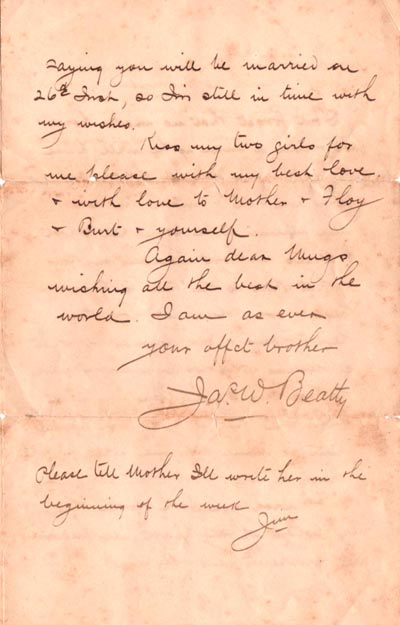 saying you will be married on
26th Inst, so I'm still in time with
my wishes.
Kiss my two girls for
me please with my best love
+ with love to Mother + Floy
+ Burt + yourself.
Again dear Mugs
wishing all the best in the
world. I am as ever
your affct brother
Jas. W. Beatty
Please tell Mother I'll write her in the
beginning of the week
Jim